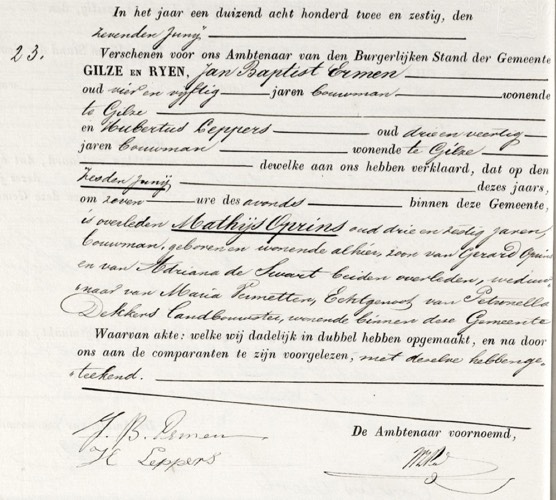 In het jaar een duizend acht honderd twee en zestig, den
zevenden Junij
23. Verschenen voor ons Ambtenaar van den Burgerlijken Stand der Gemeente
GILZE EN RYEN, Jan Baptist Ermen
oud vier en vijftig jaren bouwman wonende
te Gilze
en Hubertus Leppers oud drie en veertig
jaren bouwman wonende te Gilze
dewelke aan ons hebben verklaard, dat op den
zesden Junij dezes jaars,
om zeven ure des avonds binnen deze Gemeente,
is overleden Mathijs Oprins oud drie en zestig jaren,
bouwman, geboren en wonende alhier, zoon van Gerard Oprins
en van Adriana de Swart beiden overleden, weduw-
naar van Maria Vermetten, Echtgenoot van Petronella
Dekkers landbouwster, wonende binnen dese Gemeente
Waarvan akte: welke wij dadelijk in dubbel hebben opgemaakt, en na door
ons aan de comparanten te zijn voorgelezen, met deselve hebben ge-
teekend.
De Ambtenaar voornoemd,
J. B. Ermen
H Leppers